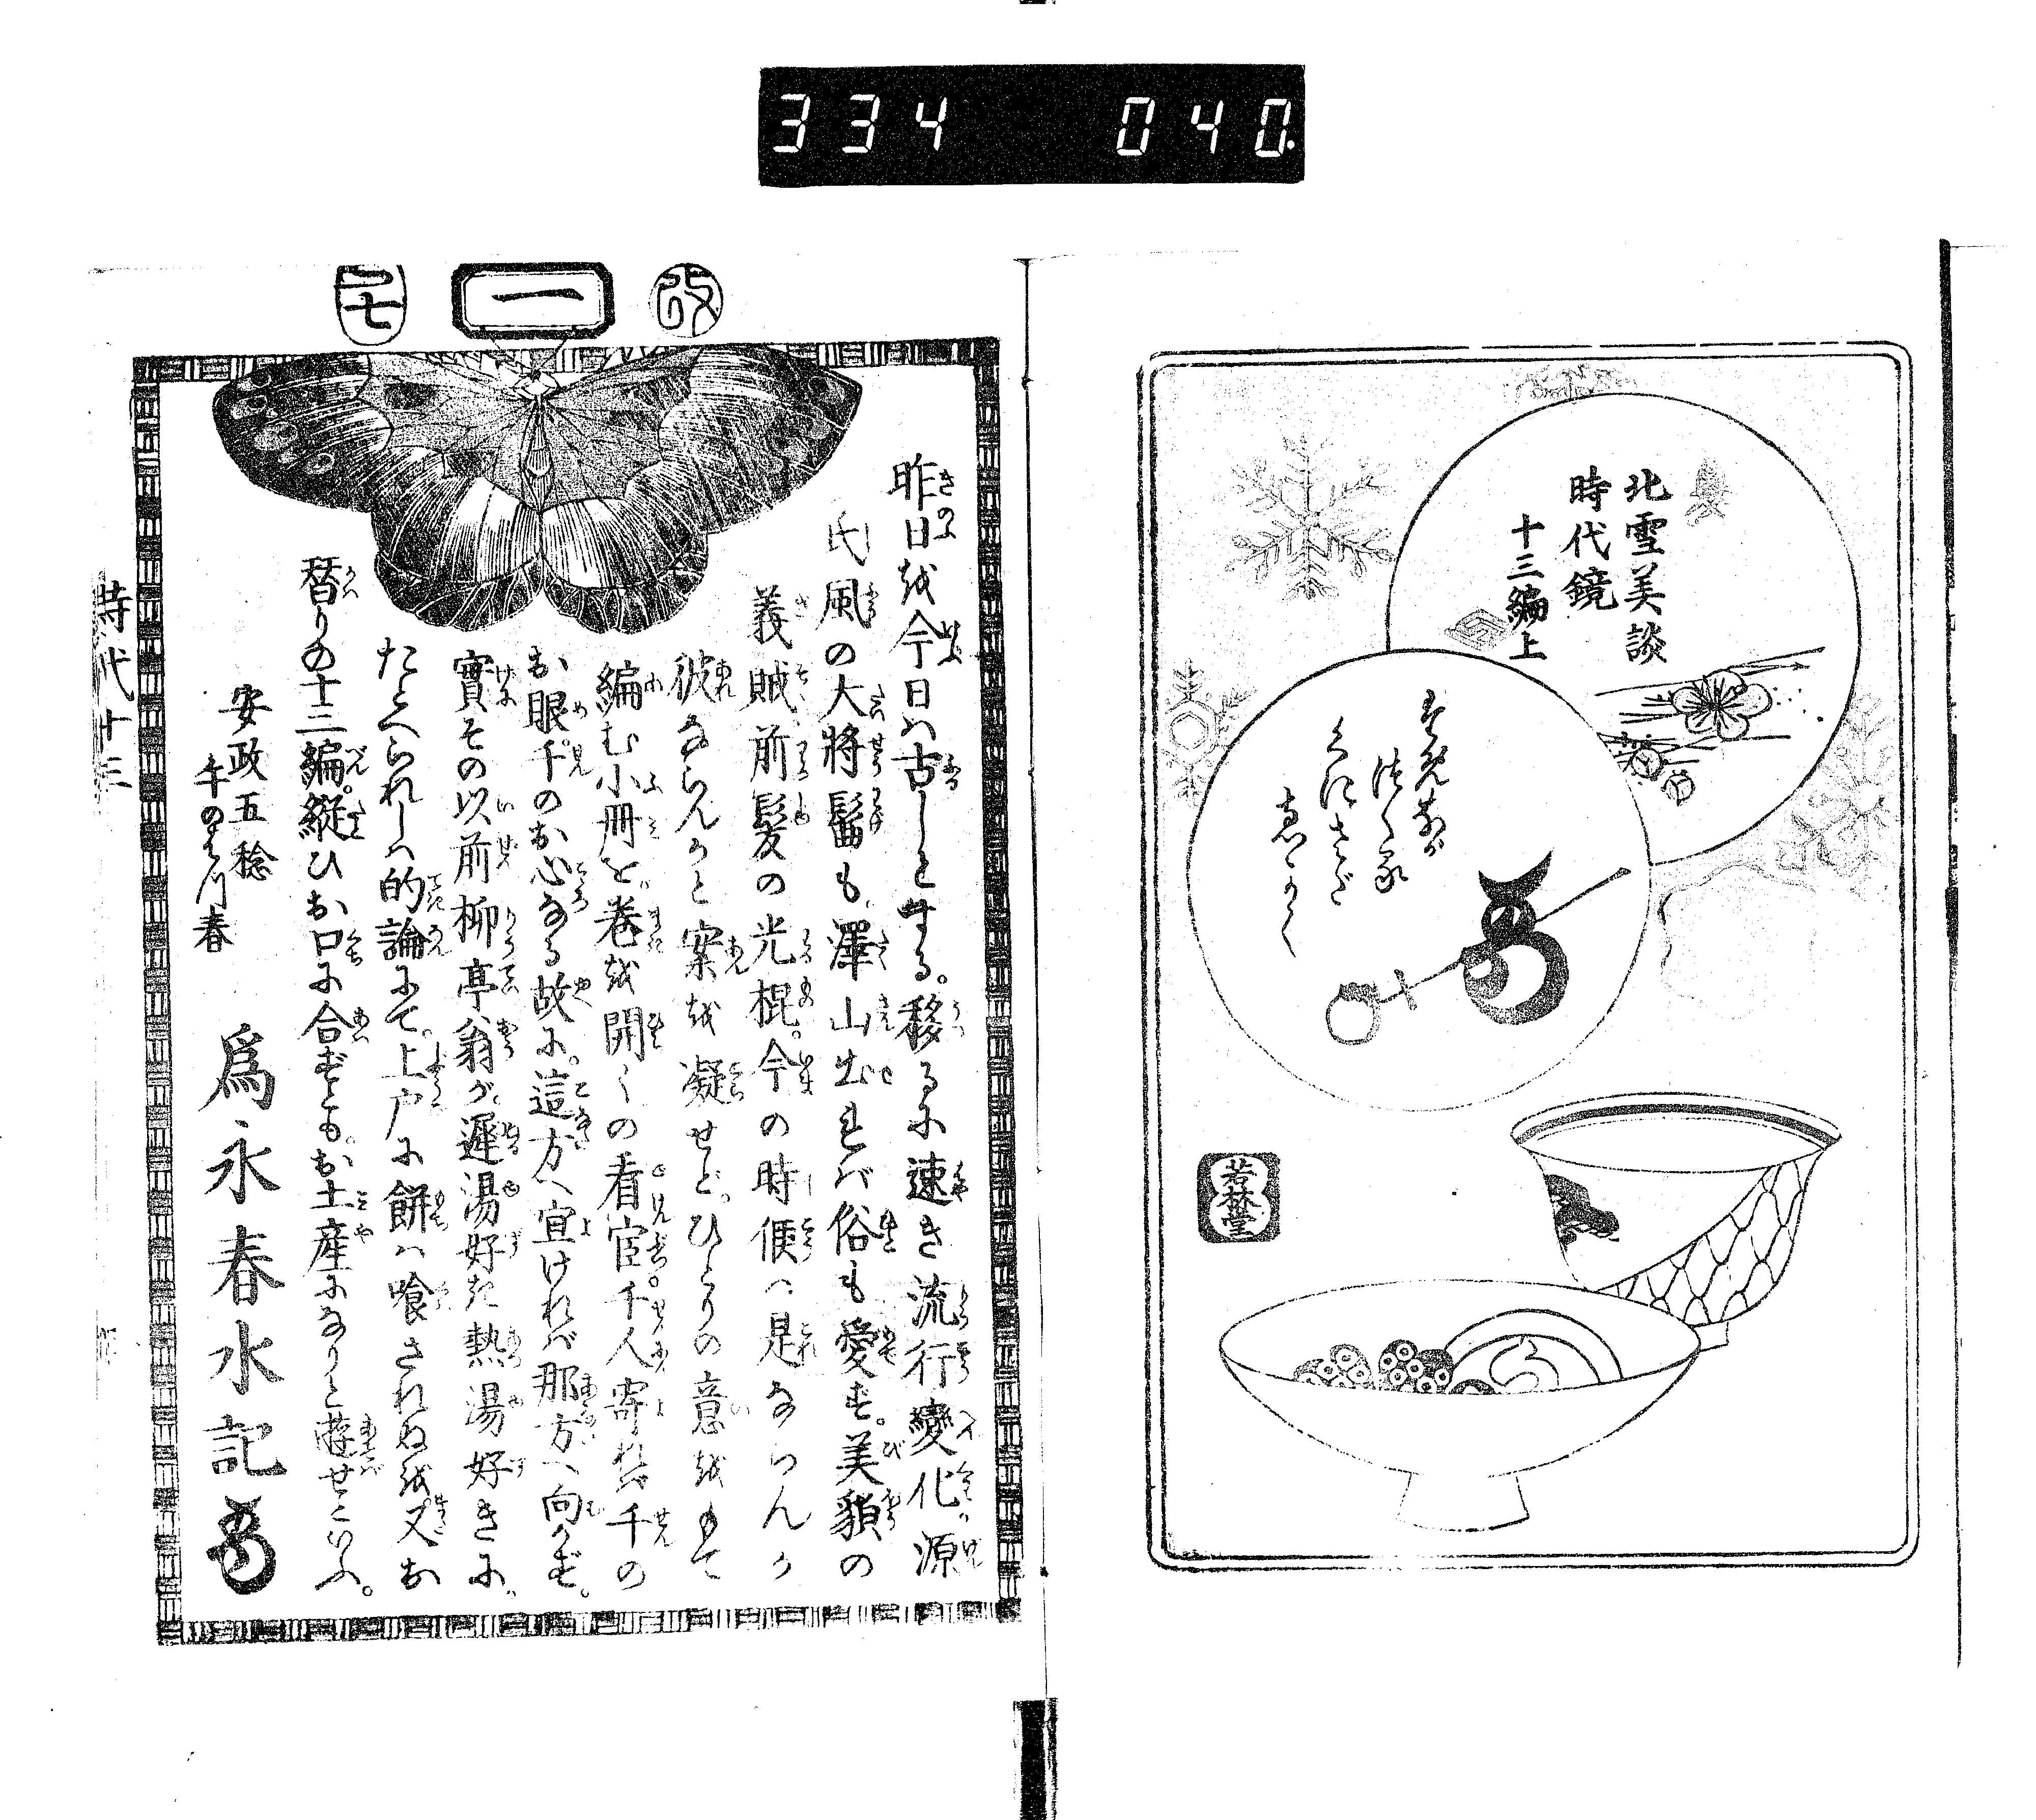 334 040
北雪美談
時代鏡
十三編上
若林堂
改
一
七
昨日を今日は古しとする。移るに速き流行變化。源
氏風の大將髷も。澤山出れば俗も愛ず。美貌の
義賊前髪の光棍。今の時便は是ならんか
彼ならんかと案を凝せど。ひとりの意をもて
編む小冊を。巻を開くの看官千人寄れば千の
お眼千のお心なる故に。這方へ宜ければ那方へ向かず。
實その以前柳亭翁が。遲湯好だ熱湯好きに。
たとへられしは的論にて。上戸に餅は喰されぬを又お
替りの十三編。縦ひお口に合ずとも。お土産になりと遊せといふ。
安政五稔
午のはつ春
爲永春水記
時代十三